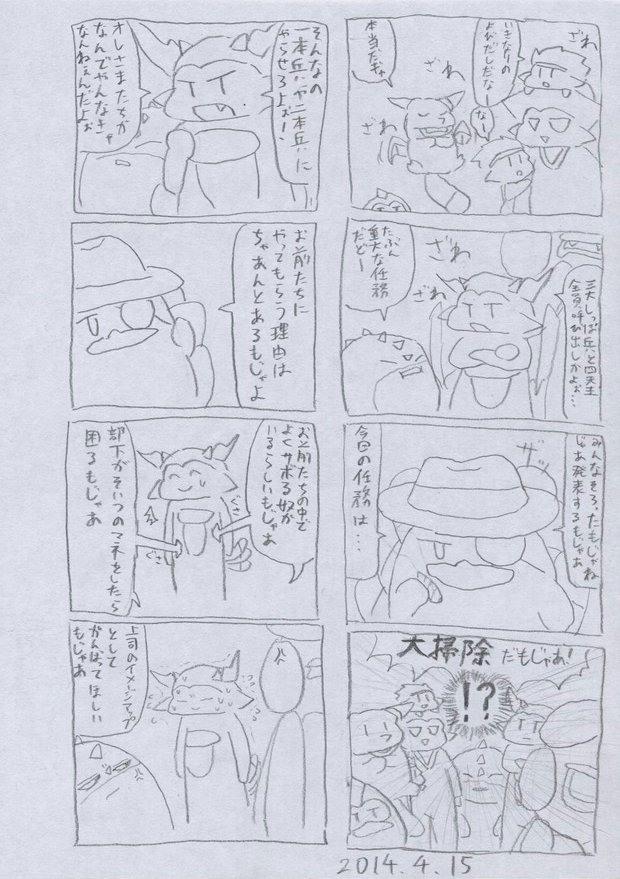 ざわ
いきなりの
よびだしだなー
なー
本当だギャ
ざわ
ざわ
三大しっぽ兵と四天王
全員呼び出しかよぉ…
ざわ
ざわ
たぶん
重大な任務
だどー
みんなそろったもじゃね
じゃあ発表するもじゃあ
ザッ
今回の任務は…
大掃除だもじゃあ!
!?
そんなの
一本兵や二本兵に
やらせろよぉー!
オレさまたちが
なんでやんなきゃ
なんねぇんだよぉ
お前たちに
やってもらう理由は
ちゃあんとあるもじゃよ
お前たちの中で
よくサボる奴が
いるらしいもじゃあ
ぐさっ
ぐさっ
部下がそいつのマネをしたら
困るもじゃあ
上司のイメージアップ
として
がんばってほしい
もじゃあ
2014.4.15